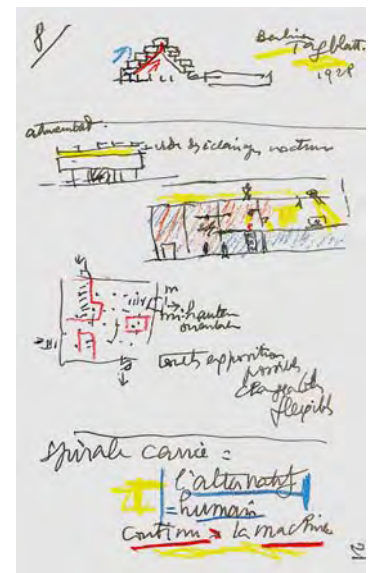 8/
Berlin
Tagblatt.
1928
éclairage nocturne
mi-hauteur
exposition
possible
changeable
flexible
spirale carrée =
l'alternatif
= humain
continu → la machine
21